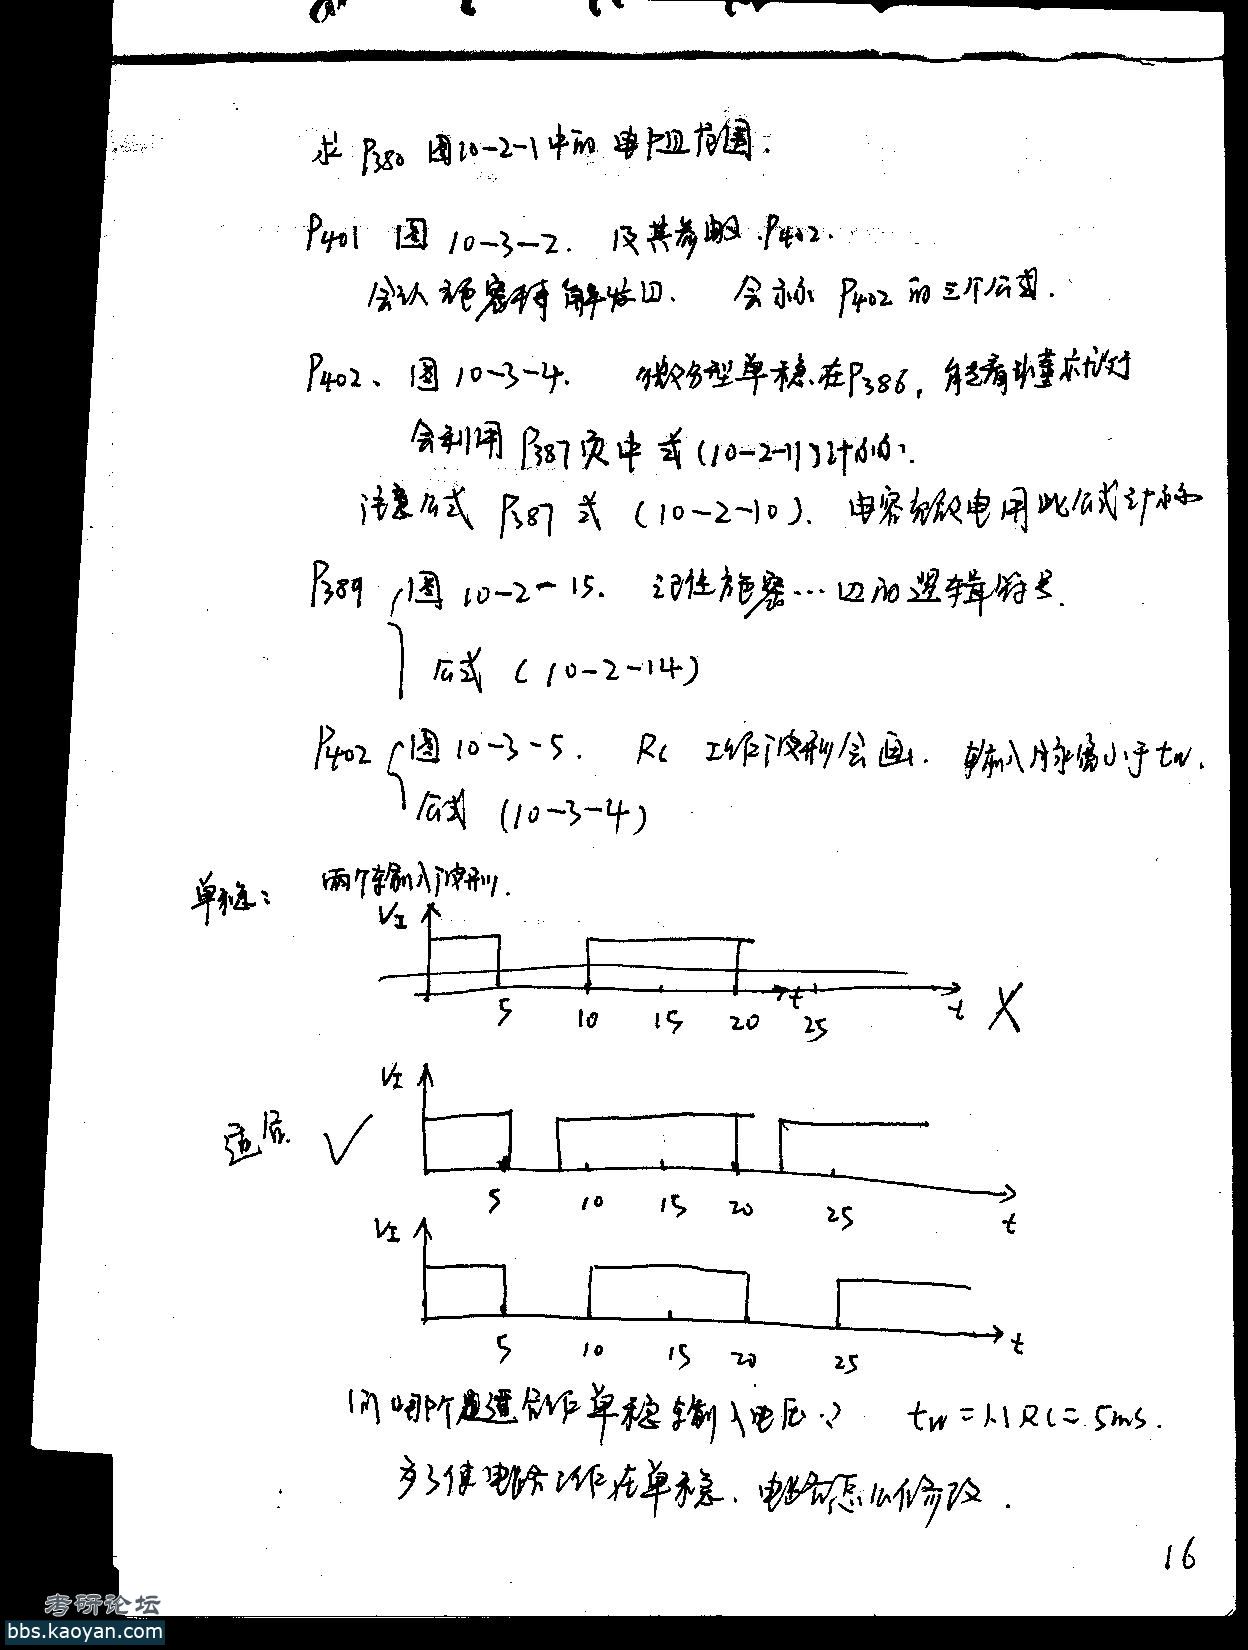 求 P380 图10-2-1中的电阻范围.
P401 图 10-3-2. 及其参数 P402.
会认施密特触发口. 会求 P402 的三个公式.
P402、图 10-3-4. 微分型单稳在P386,
会利用 P387页中 式(10-2-11)计价.
注意公式 P387 式 (10-2-10). 电容充放电用此公式计称
P389 图 10-2-15. 记住施密…的逻辑符号.
公式 (10-2-14)
P402 图 10-3-5. RC 工作波形会画. 输入脉宽小于tw.
公式 (10-3-4)
单稳: 两个输入波形.
VI
5 10 15 20 t 25 t X
VI
适应 ✓
5 10 15 20 25 t
VI
5 10 15 20 25 t
问哪个是适合作单稳输入电压? tw=1.1RC=5ms.
为了使电路工作在单稳、电路怎么修改.
16
考研论坛
bbs.kaoyan.com